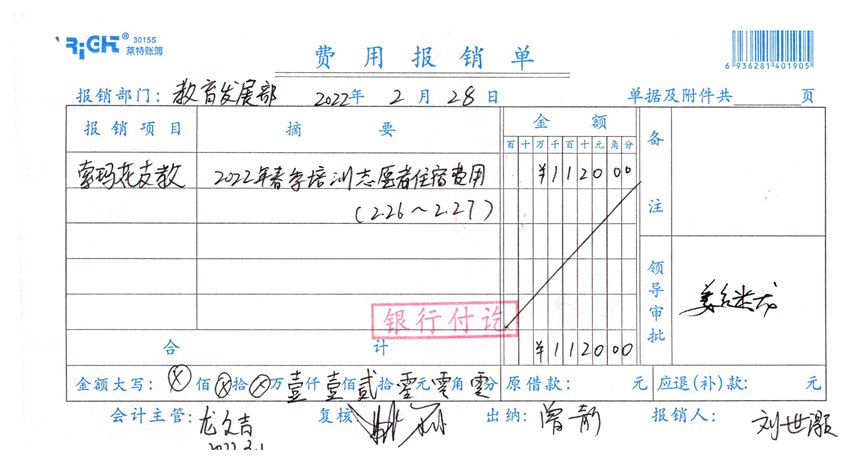 RiGHT® 3015S
莱特账簿
费用报销单
6 936281 401905
报销部门：教育发展部 2022年2月28日 单据及附件共 页
报销项目 摘要 金额 备注
百十万千百十元角分
索玛花支教 2022年春季培训志愿者住宿费用 ¥112000
(2.26～2.27)
领导审批
银行付讫
合计 ¥112000
金额大写：ⓧ佰ⓧ拾ⓧ万壹仟壹佰贰拾零元零角零分 原借款： 元 应退(补)款： 元
会计主管：龙文吉 复核 出纳：曾 报销人：刘世灏
2022.3.1